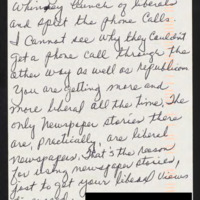 bunch of liberals
and split the phone calls.
I cannot see why they couldn't
get a phone call through the
other way as well as Republican
You are getting more and
more liberal all the time. The
only Newspaper stories there
are, practically, are liberal
newspapers. That's the reason
for using newspaper stories,
just to get your liberal views